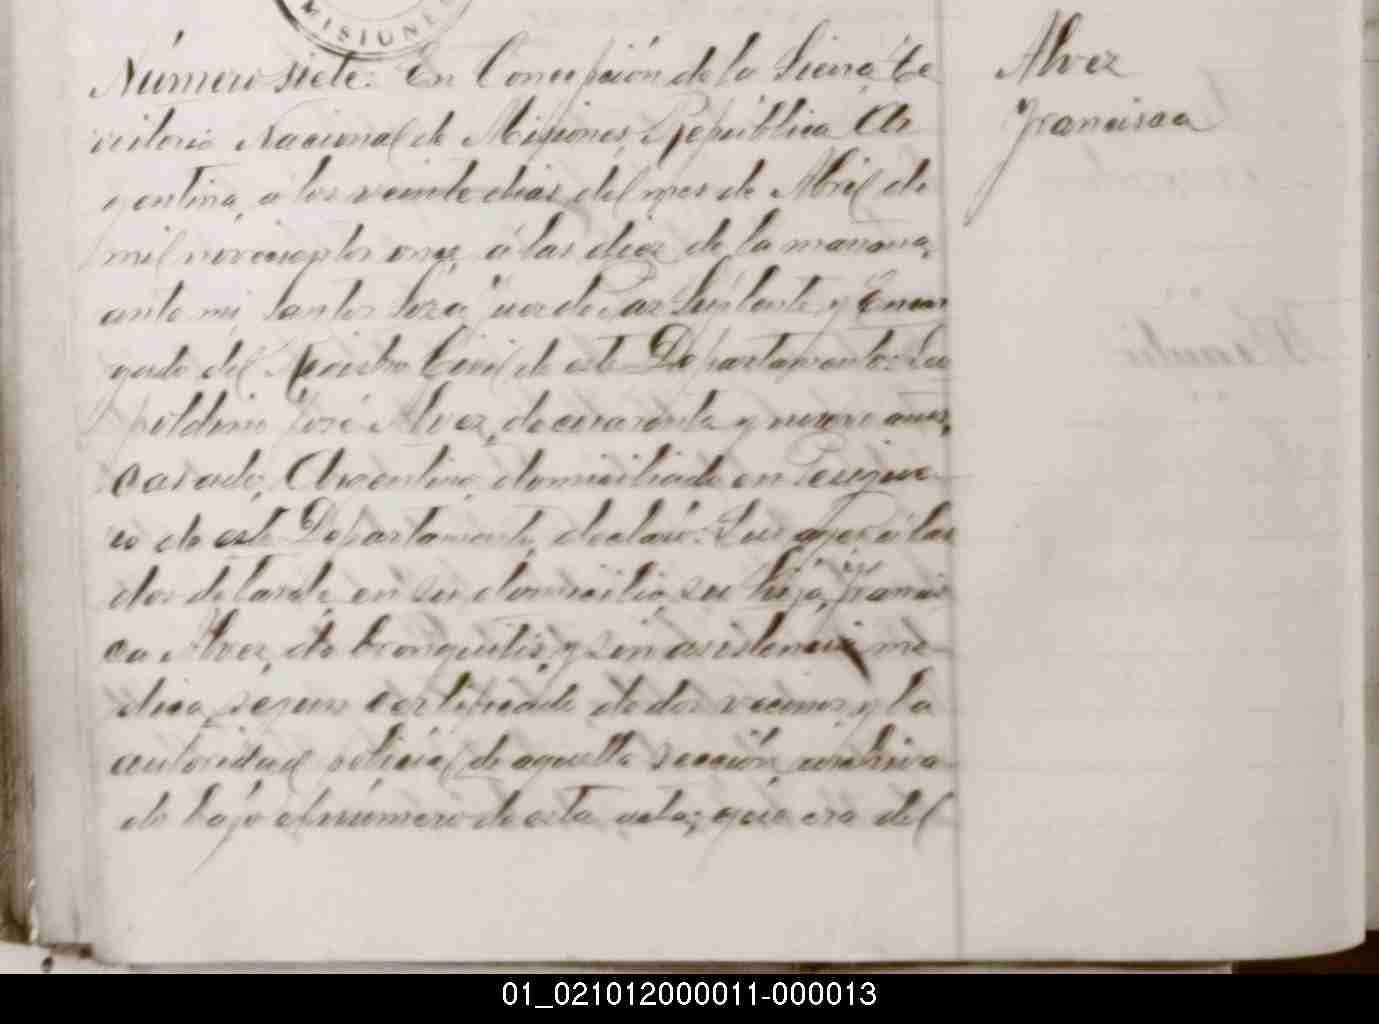 MISIONES
Número siete: En Concepción de la Sierra, Te
rritorio Nacional de Misiones, República Ar
gentina, á los veinte dias del mes de Abril de
mil novecientos once, á las diez de la mañana,
ante mi Santos Juez de Paz Suplente y Encar
gado del Registro Civil de este Departamento: Leo
poldino José Alvez, de cuarenta y nueve años,
casado, Argentino, domiciliado en Persiguie
ro de este Departamento, declaró: Que ayer á las
dos de tarde, en su domicilio, su hija, Francis
ca Alvez, de bronquitis, y sin asistencia me
dica, segun certificado de dos vecinos y la
autoridad policial de aquella sección, archiva
do bajo el número de esta acta; que era del
Alvez
Francisca
01_021012000011-000013